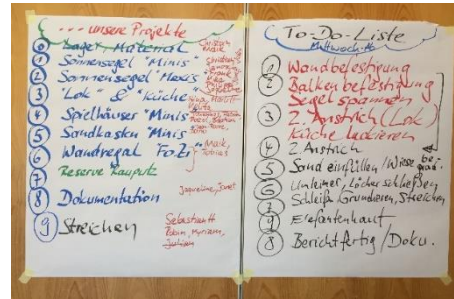 ... unsere Projekte
0 Lager, Material
1 Sonnensegel "Minis"
2 Sonnensegel "Maxis"
3 "Lok" & "Küche"
4 Spielhäuser "Minis"
5 Sandkasten "Minis"
6 Wandregal FoZi
Maik, Tobias
7 Reserve Rauputz
8 Dokumentation
Jaqueline, Janet
9 Streichen
Sebastian H
Robin, Myriam,
Julian
To-Do-Liste
Mittwoch
1 Wandbefestigung
2 Balken befestigung
Segel spannen
3 2. Anstrich (Lok)
Küche lackieren
4 2. Anstrich
5 Sand einfüllen / Wiese
6 Löcher schließen
7 Schleifen, Grundieren, Streichen
9 Elefantenhaut
8 Bericht fertig / Doku.